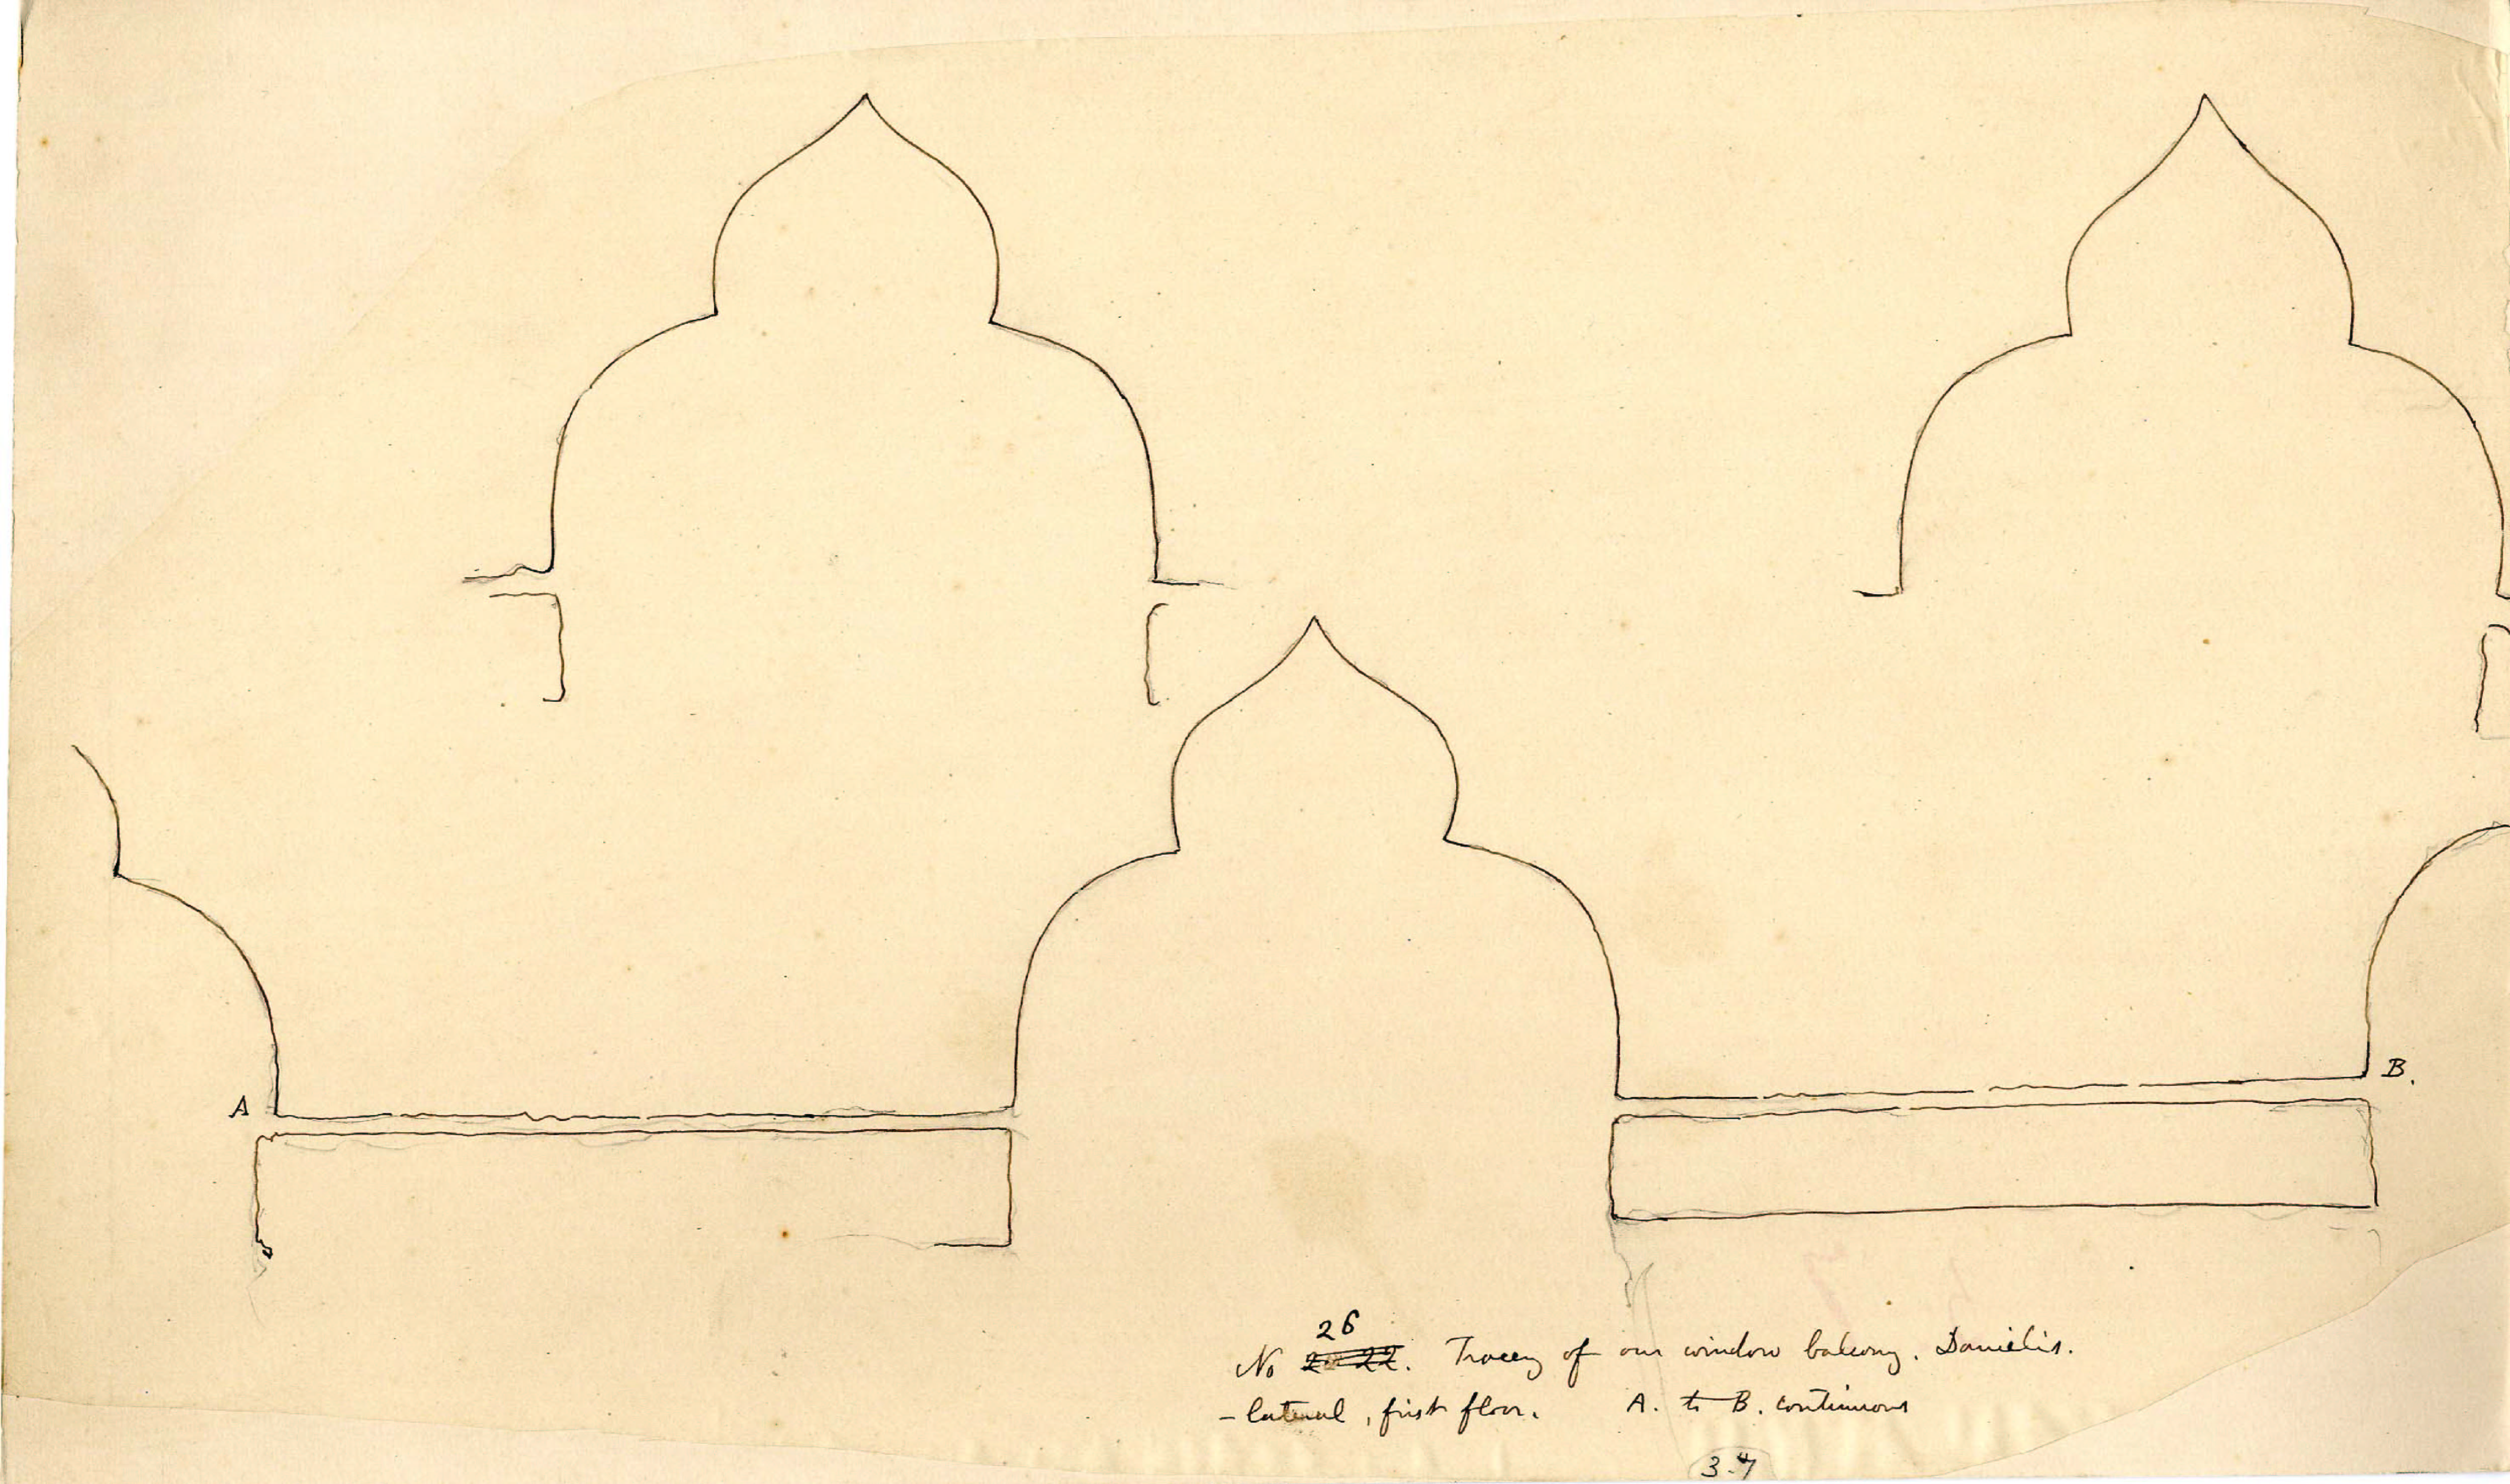 A
B.
26
No 2 22. Tracery of our window balcony. Danielis.
- lateral, first floor. A. to B. continuous
3.4